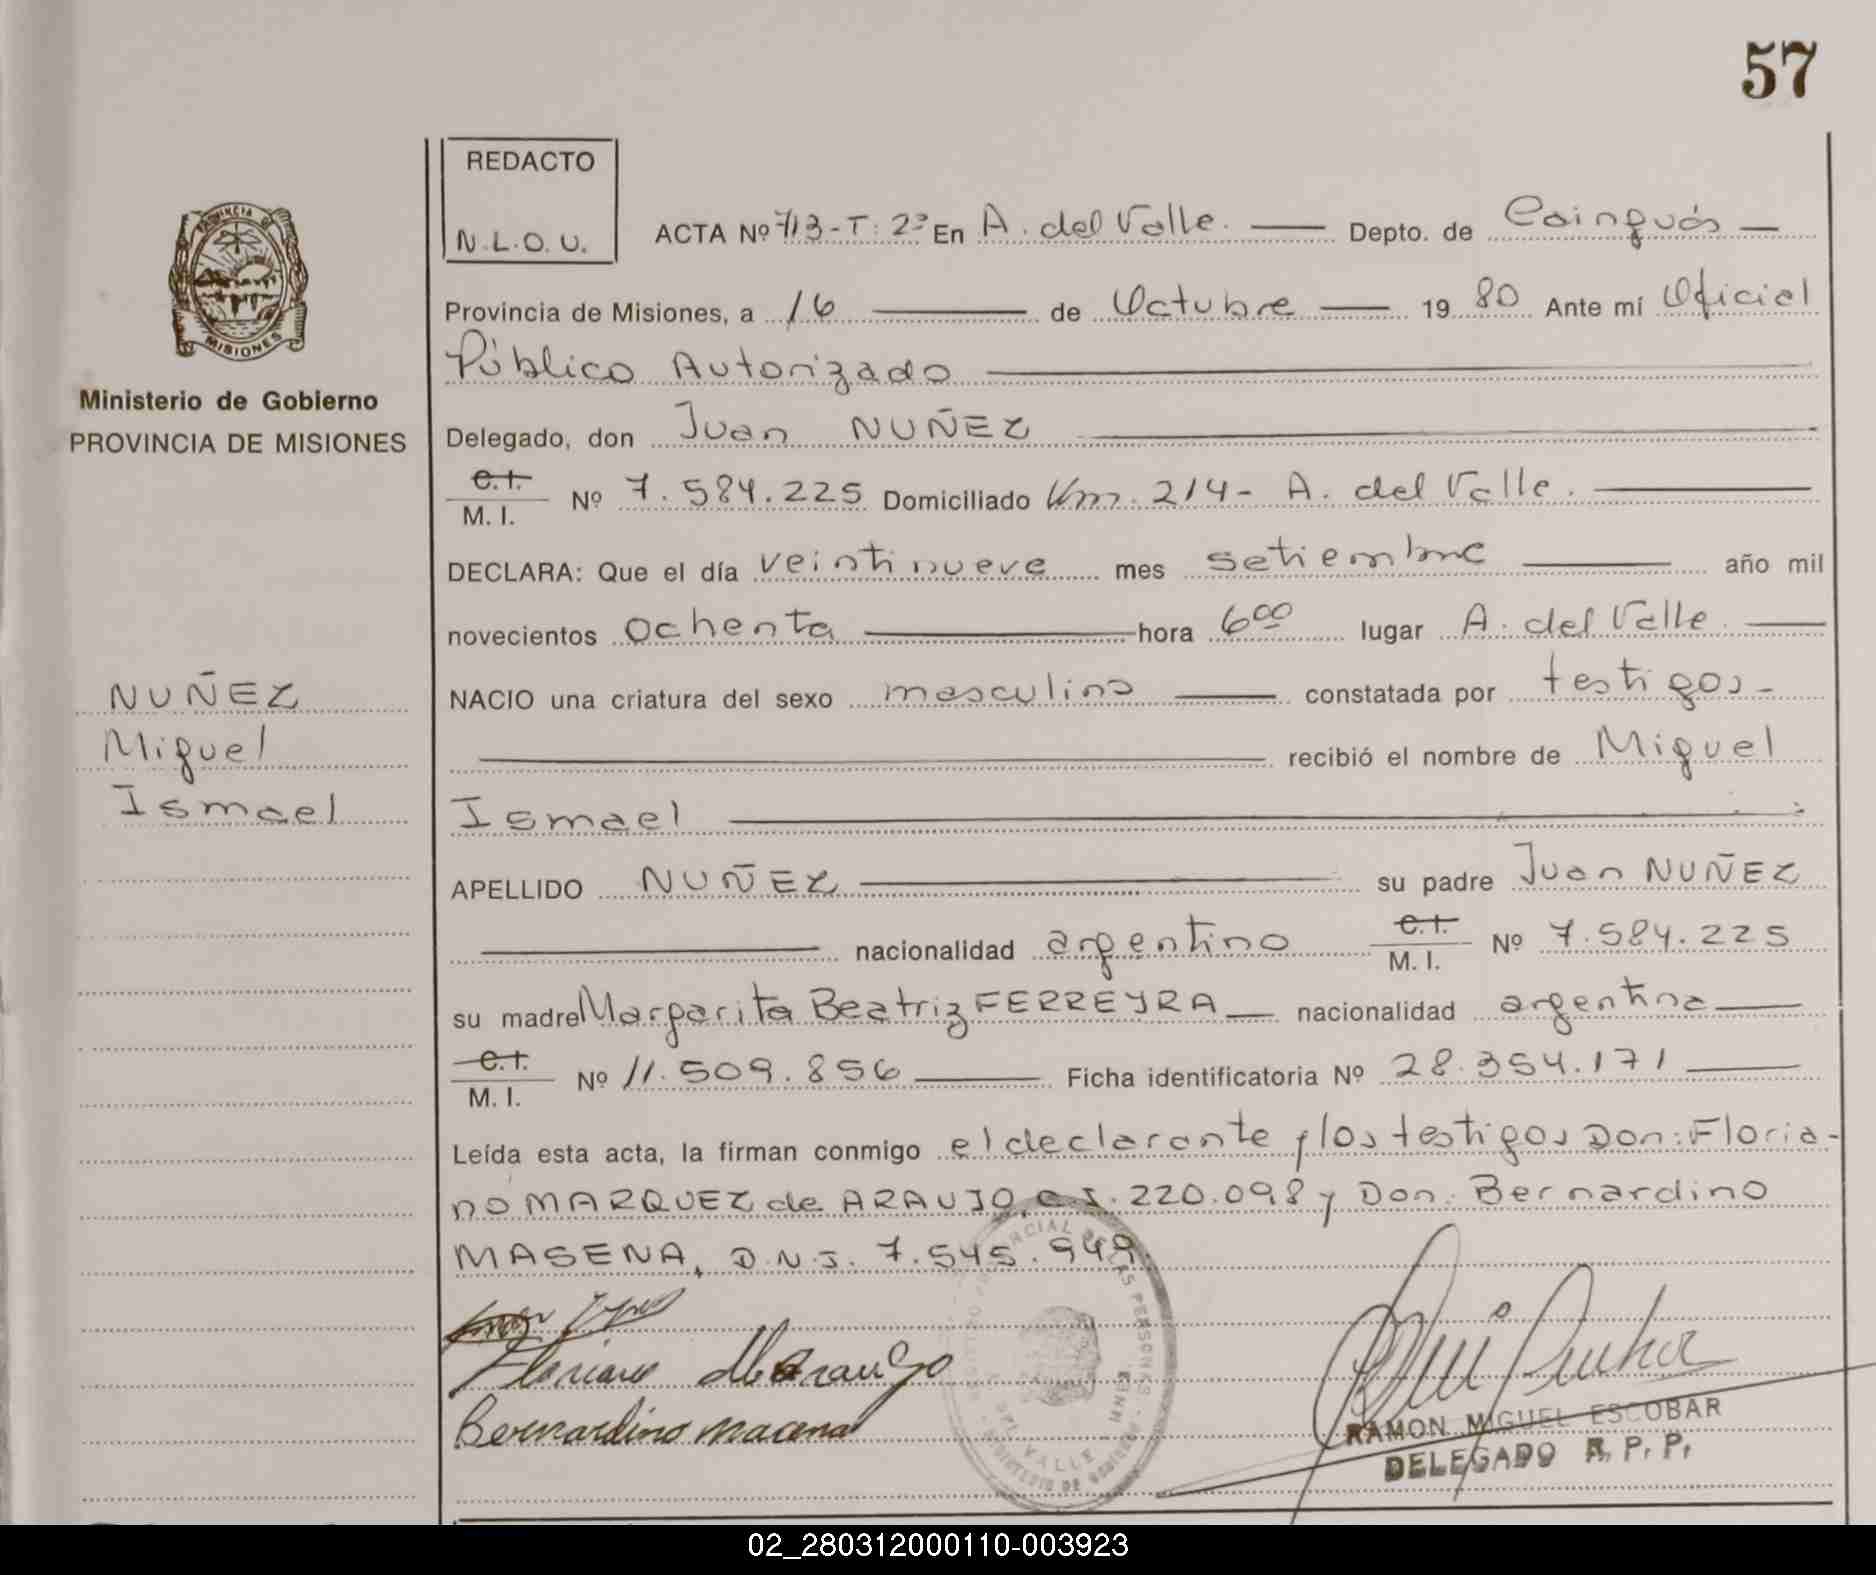 57
REDACTO
N.L.O.U.
ACTA Nº 713-T: 2º En A. del Valle. Depto. de Cainguás
PROVINCIA DE
MISIONES
Provincia de Misiones, a 16 de Octubre 19 80 Ante mí Oficial
Público Autorizado
Ministerio de Gobierno
PROVINCIA DE MISIONES
Delegado, don Juan NUÑEZ
C.I.
M. I. Nº 7.584.225 Domiciliado Km. 214- A. del Valle.
DECLARA: Que el día veintinueve mes setiembre año mil
novecientos ochenta hora 6⁰⁰ lugar A. del Valle.
NUÑEZ
Miguel
Ismael
NACIO una criatura del sexo masculino constatada por testigos-
recibió el nombre de Miguel
Ismael
APELLIDO NUÑEZ su padre Juan NUÑEZ
nacionalidad argentino C.I.
M. I. Nº 7.584.225
su madre Margarita Beatriz FERREYRA nacionalidad argentina
C.I.
M. I. Nº 11.509.856 Ficha identificatoria Nº 28.354.171
Leída esta acta, la firman conmigo el declarante y los testigos Don: Floria-
no MARQUEZ de ARAUJO, C.I. 220.098 y Don: Bernardino
MASENA, D.N.I. 7.545.949.
Floriano M de Araujo
Bernardino macena
DE LAS PERSONAS
DEL VALLE
MINISTERIO DE GOBIERNO
RAMON MIGUEL ESCOBAR
DELEGADO R. P. P.
02_280312000110-003923